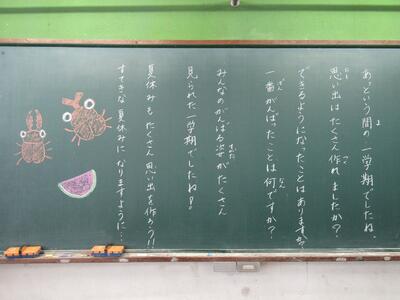 あっという間の一学期でしたね。
思い出はたくさん作れましたか？
できるようになったことはありますか？
一番がんばったことは何ですか？
みんなのがんばる姿がたくさん
見られた一学期でしたね！
夏休みもたくさん思い出を作ろう！！
すてきな夏休みになりますように…